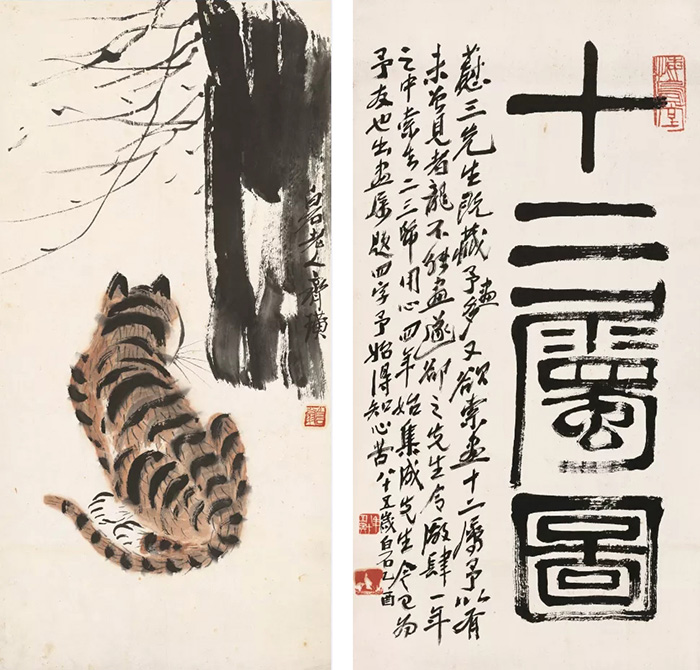 白石老人齊璜
悔烏堂
十二屬圖
三先生既藏予畫多又欲索畫十二屬予以有
未曾見者龍不能畫遂却之先生令廠肆一年
之中索去二三幅用心四年始集成先生今已為
予友也出畫屬題四字予始得知心苦八十五歲白石乙酉